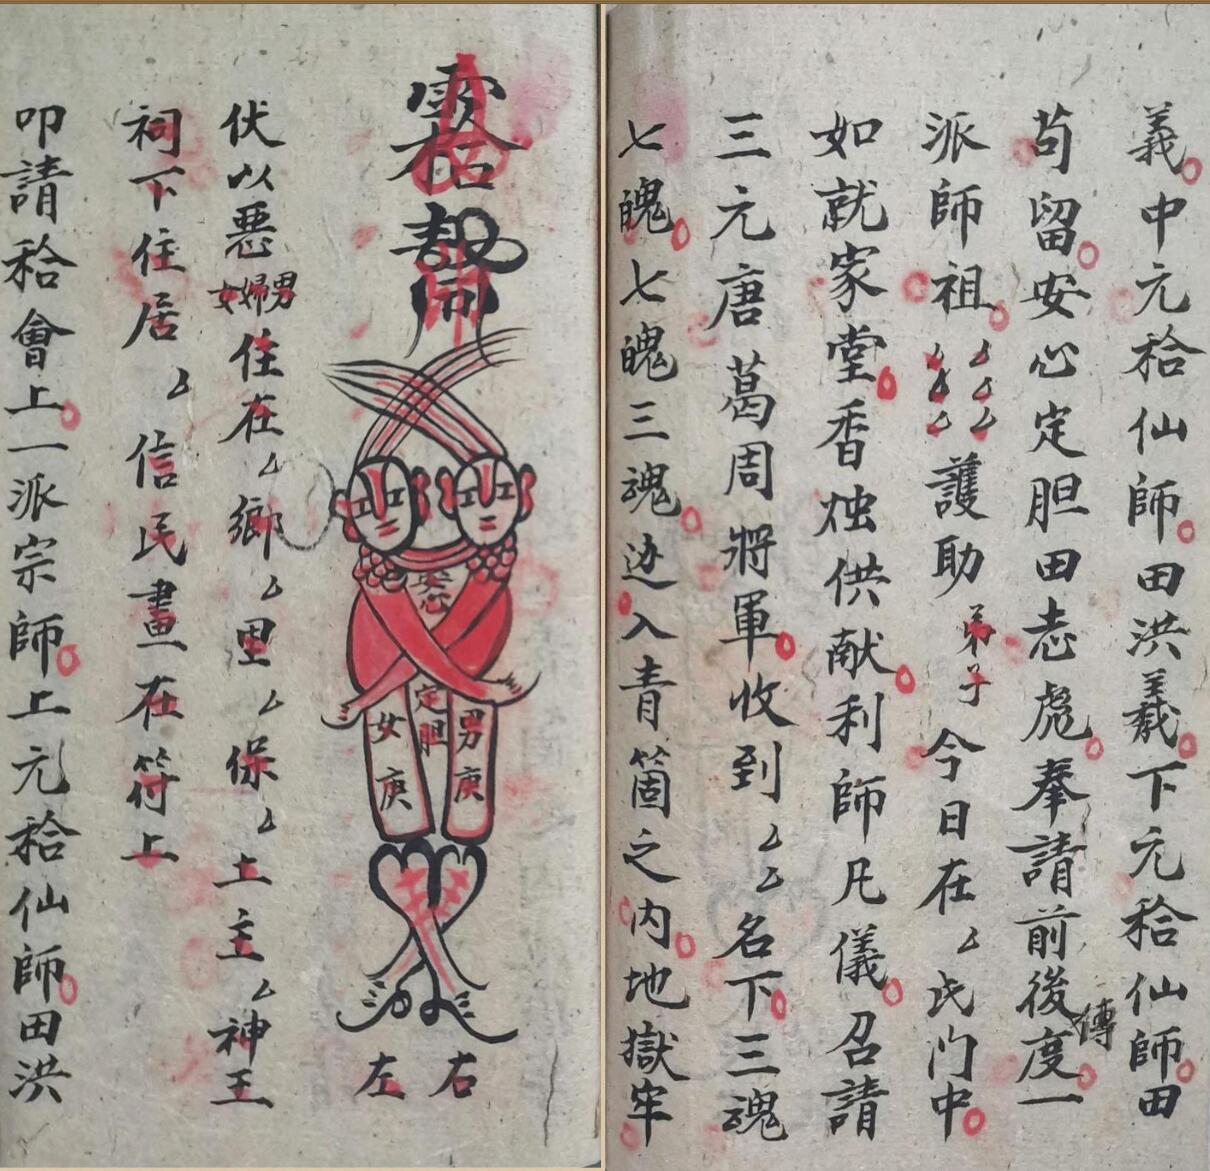 安心
定胆
男庚
女庚
右
左
伏以惡男婦女住在鄉里保土主神王
祠下住居信民畫在符上
叩請秴會上一派宗師上元秴仙師田洪
義中元秴仙師田洪義下元秴仙師田
苟留安心定胆田志彪奉請前後傳度一
派師祖護助弟子今日在氏门中
如就家堂香烛供献利師凡儀召請
三元唐葛周將軍收到名下三魂
七魄七魄三魂迯入青箇之内地獄牢